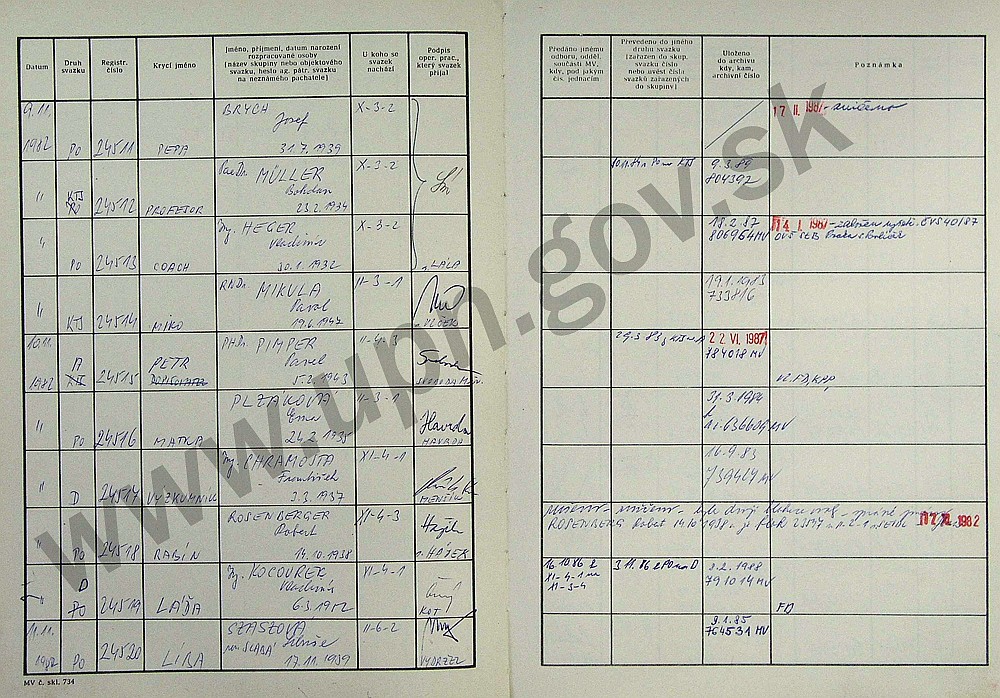 Datum
Druh
svazku
Registr.
číslo
Krycí jméno
Jméno, příjmení, datum narození
rozpracované osoby
(název skupiny nebo objektového
svazku, heslo ag. pátr. svazku
na neznámého pachatele)
U koho se
svazek
nachází
Podpis
oper. prac.,
který svazek
přijal
Předáno jinému
odboru, odděl.
součásti MV,
kdy, pod jakým
čís. jednacím
Převedeno do jiného
druhu svazku
(zařazen do skup.
svazku číslo
nebo uvést číslo
svazků zařazených
do skupiny)
Uloženo
do archivu
kdy, kam,
archivní číslo
Poznámka
9.11. BRYCH X-3-2 17 II. 1987 - zničeno
Josef
1982 Po 24511 PEPA 31.7.1939
PaeDr. MÜLLER X-3-2 9.3.89
" KTS Bohdan 804392
Po 24512 PROFESOR 23.2.1934
Ing. HEGER X-3-2 18.2.87 14. I. 1987
" Vladimír 806964 MV
Po 24513 COACH 30.1.1932 LÁLA
RNDr. MIKULA II-3-1 19.1.1983
" Pavol 733816
KTS 24514 MIKO 19.6.1947 VLČEK
10.11. PhDr. PIMPER II-4-3 22 VI. 1987
A PETR Pavel 784018 MV
1982 24515 5.2.1943 SVOBODA
PLZÁKOVÁ II-3-1 31.3.1984
" Ema
Po 24516 MATKA 24.2.1935 HAVRDA 636604 MV
Ing. CHRAMOSTA XI-4-1 16.9.83
" František
D 24517 VÝZKUMNÍK 3.3.1937 MENŠÍK 739464 MV
ROSENBERGER XI-4-3
" Robert ROSENBERG Robert 14.10.1938 1982
Po 24518 RABÍN 14.10.1938 HÁJEK
Ing. KOCOUREK XI-4-1 16.10.86 3.11.86 z PO na D 2.2.1988
" D Vladimír XI-4-1 na 791014 MV
Po 24519 LÁĎA 6.3.1952 KOT XI-3-4 FD
11.11. SZASZOVÁ II-6-2 9.1.85
roz. SLABÁ Libuše 764531 MV
1982 Po 24520 LÍBA 17.11.1939 VYDRZEL
MV č. skl. 734
www.upn.gov.sk